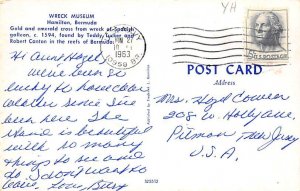 WRECK MUSEUM
Hamilton, Bermuda
Gold and emerald cross from wreck of Spanish
galleon, c. 1594, found by Teddy Tucker and
Robert Canton in the reefs of Bermuda.
YH
1963
5¢ U.S. POSTAGE
Hi Aunt Hazel,
We've been so
lucky to have clear
weather since we've
been here. The
island is beautiful
with so many
things to see and
do. I don't want to
leave. Love, Betsy
POST CARD
Address
Mrs. Floyd Cowen
208 W. Holly Ave,
Pitman New Jersey
U.S.A.